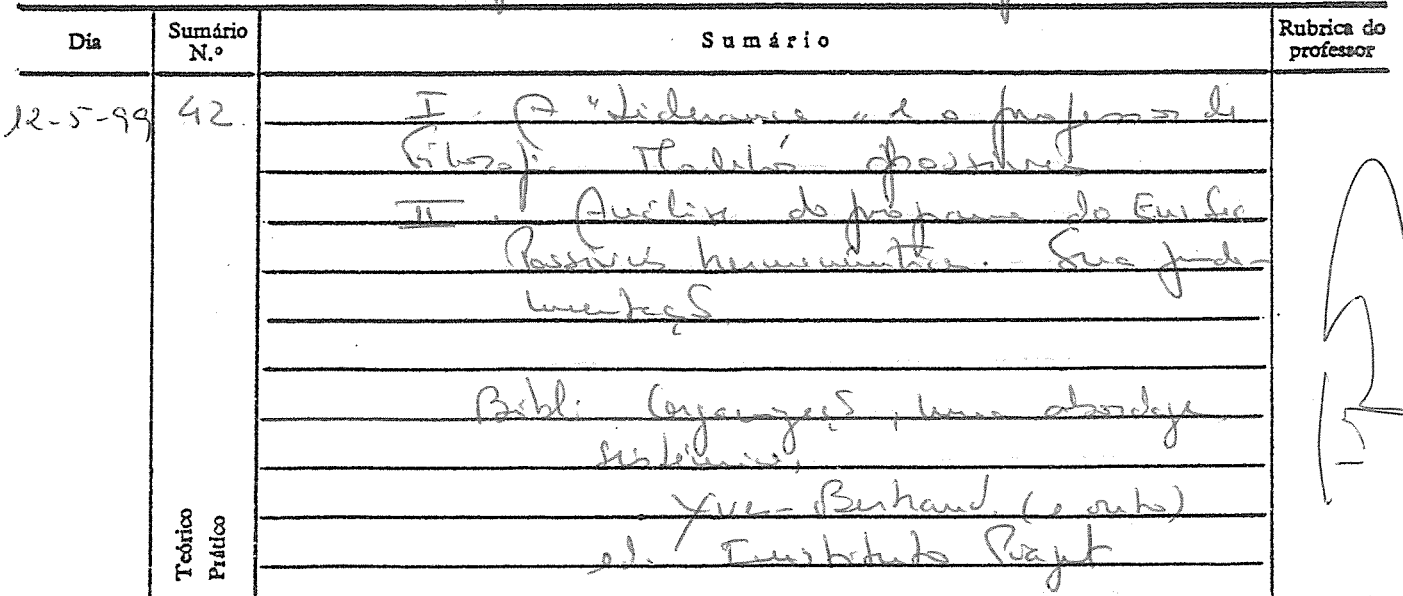 Dia Sumário N.º Sumário Rubrica do professor
12-5-99 42. I. A "Liderança" e o professor de
Filosofia
II. Análise do programa do Ens Sec
hermenêutica. Sua funda-
mentaçõ
Bibl: Organizaçõ, uma abordage
sistémica,
Yves Bertrand (e outro)
ed. Instituto Piaget
Teórico
Prático